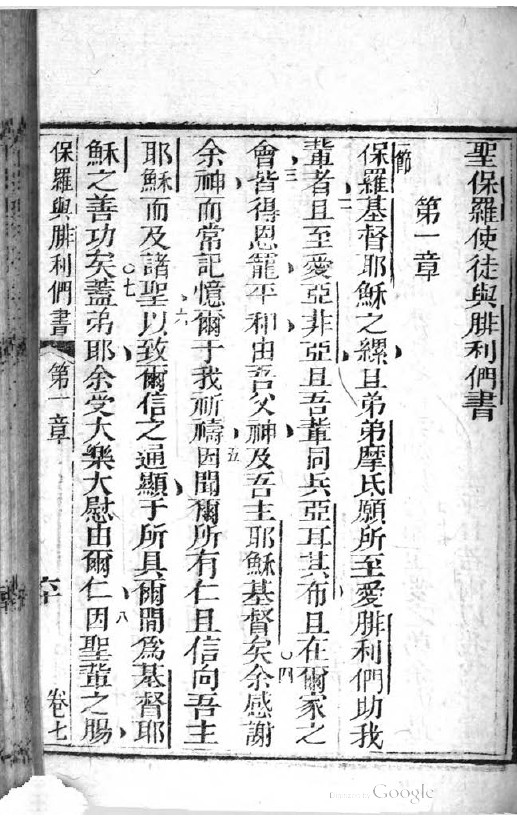 聖保羅使徒與腓利們書
第一章
節
保羅基督耶穌之縲且弟弟摩氐願所至愛腓利們助我
二
輩者且至愛亞非亞且吾輩同兵亞耳其布且在爾家之
三
會皆得恩寵平和由吾父神及吾主耶穌基督矣余感謝
四
余神而常記憶爾于我祈禱因聞爾所有仁且信向吾主
五
耶穌而及諸聖以致爾信之通顯于所具爾間為基督耶
六
穌之善功矣蓋弟耶余受大樂大慰由爾仁因聖輩之腸
七
八
保羅與腓利們書
第一章
六十
卷七
Digitized by Google